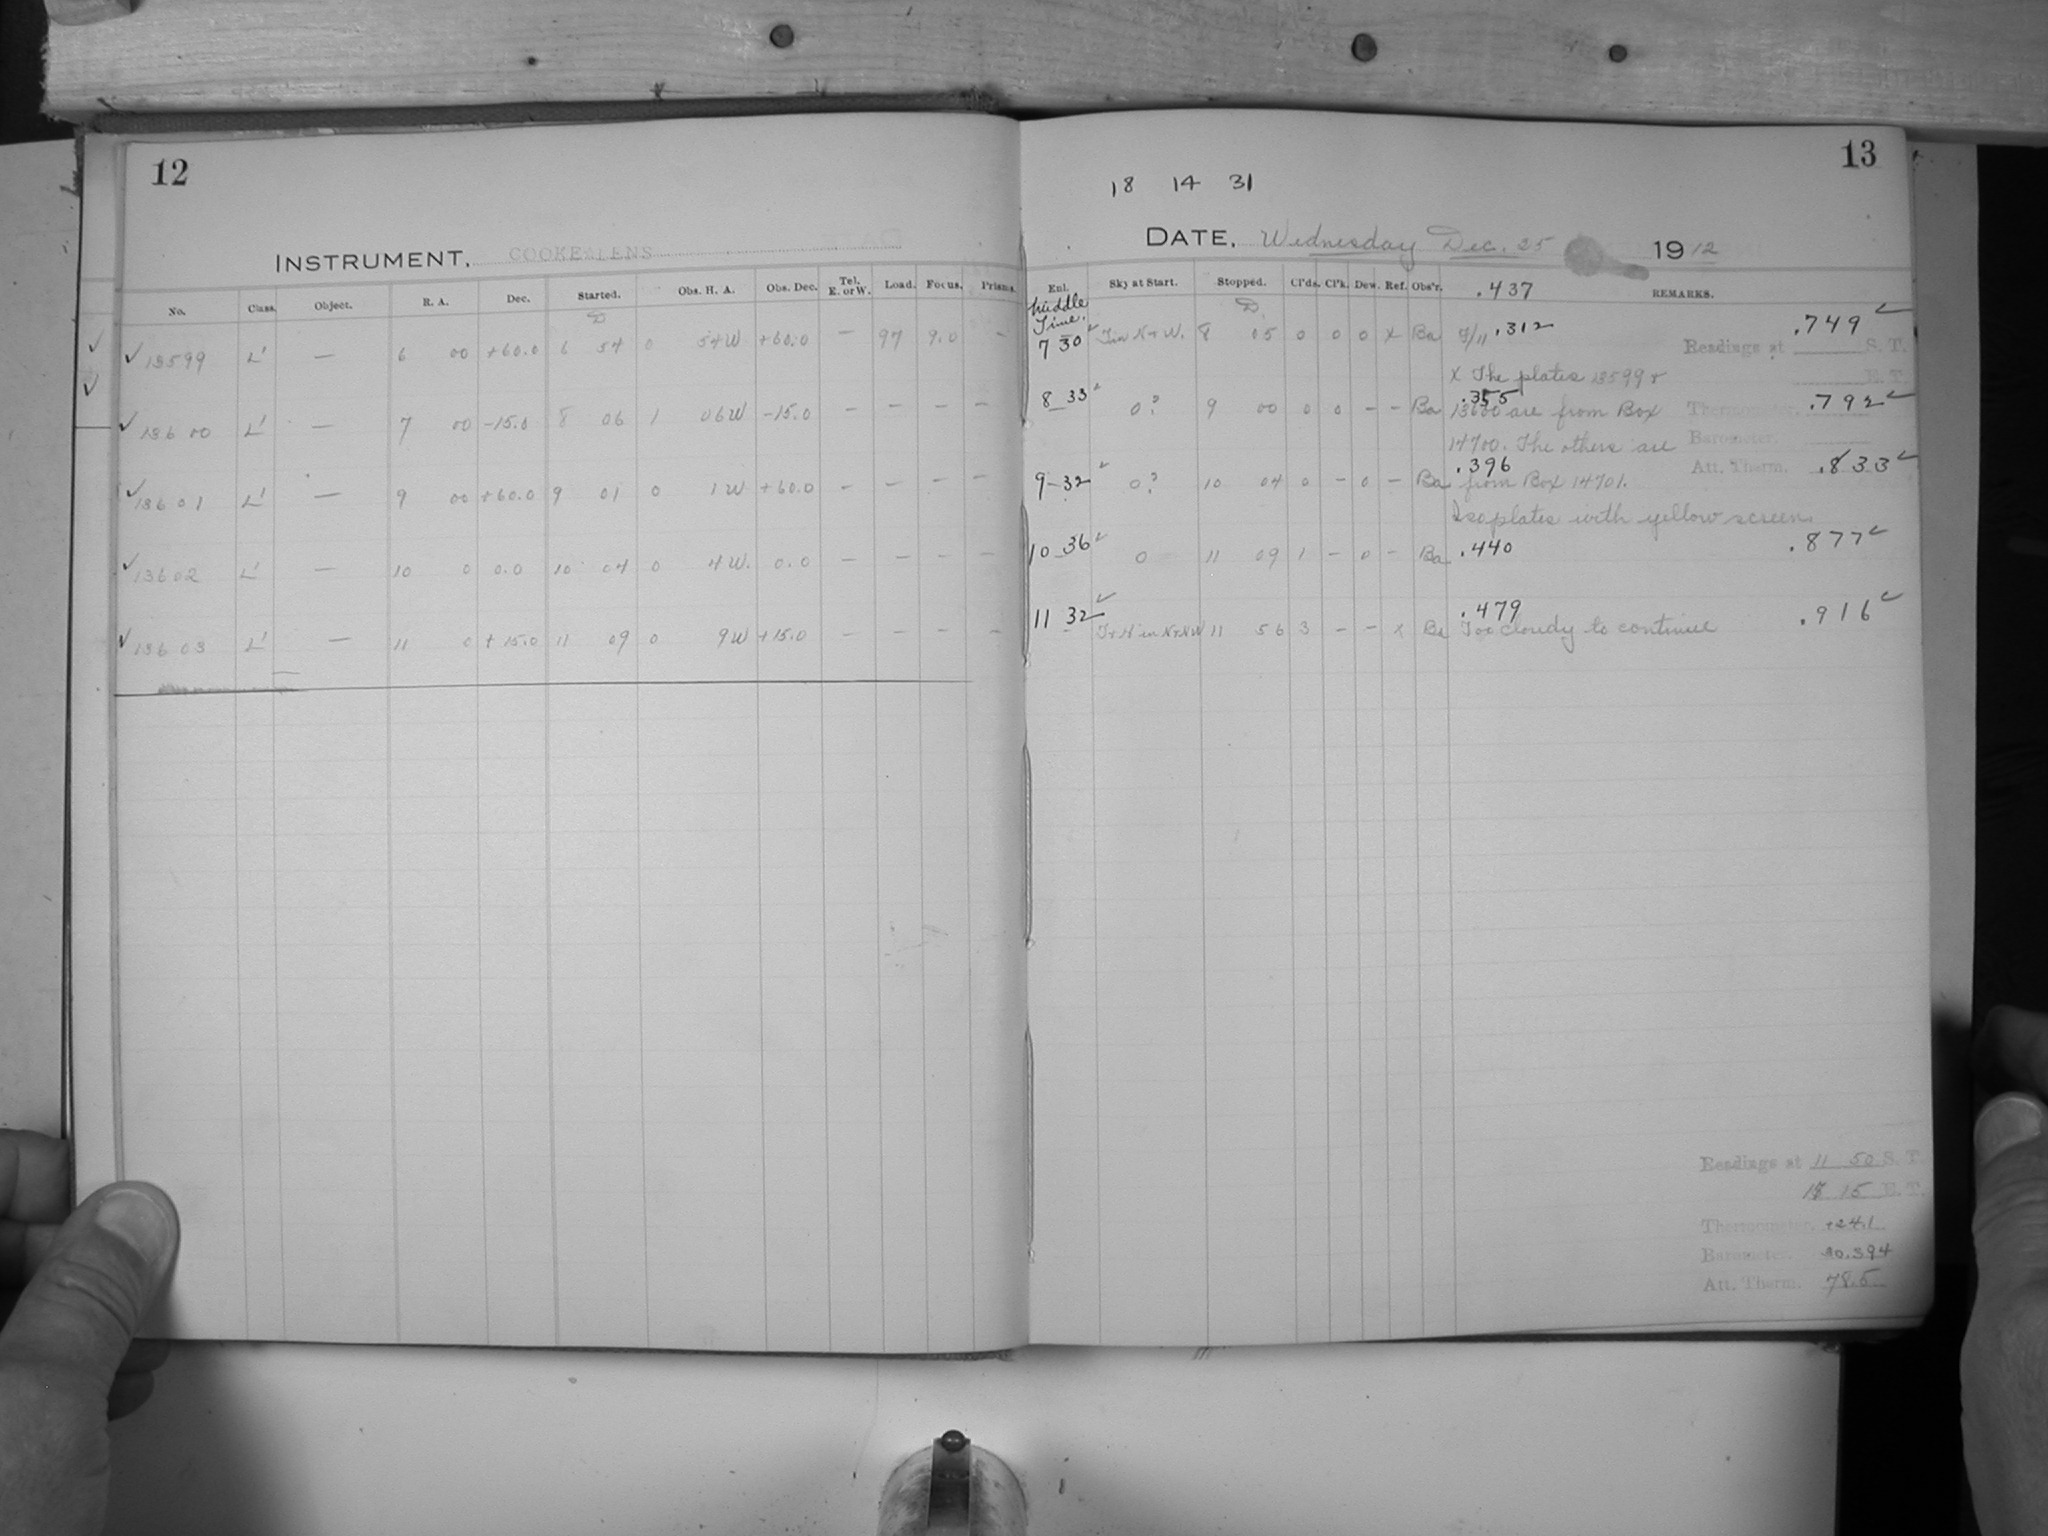 12
INSTRUMENT, COOKE LENS
No. Class. Object. R. A. Dec. Started. Obs. H. A. Obs. Dec. Tel. E. or W. Load. Focus. Prisms.
D
✓ 13599 L' — 6 00 +60.0 6 54 0 54W +60.0 — 97 9.0 —
✓ 13600 L' — 7 00 -15.0 8 06 1 06W -15.0 — — — —
✓ 13601 L' — 9 00 +60.0 9 01 0 1W +60.0 — — — —
✓ 13602 L' — 10 0 0.0 10 04 0 4W. 0.0 — — — —
✓ 13603 L' — 11 0 +15.0 11 09 0 9W +15.0 — — — —
13
18 14 31
DATE, Wednesday Dec. 25 1912
Enl. Sky at Start. Stopped. Cl'ds. Cl'k. Dew. Ref. Obs'r. .437 REMARKS.
Middle Time.
D
7 30 ✓ N + W. 8 05 0 0 0 x Ba .312 .749 ✓
Readings at S. T.
x The plates 13599 +
E. T.
8 33 ✓ 0? 9 00 0 0 - - Ba .355 .792 ✓
13600 are from Box Thermometer,
14700. The others are Barometer.
9-32 ✓ 0? 10 04 0 - 0 - Ba .396 Att. Therm. .833 ✓
from Box 14701.
Iso plates with yellow screen.
10-36 ✓ 0 11 09 1 - 0 - Ba .440 .877 ✓
11 32 ✓ in N+NW 11 56 3 - - x Ba .479 .916 ✓
Too cloudy to continue
Readings at 11 50 S. T.
15 E. T.
Thermometer, +24.1
Barometer. 30.394
Att. Therm. 78.5